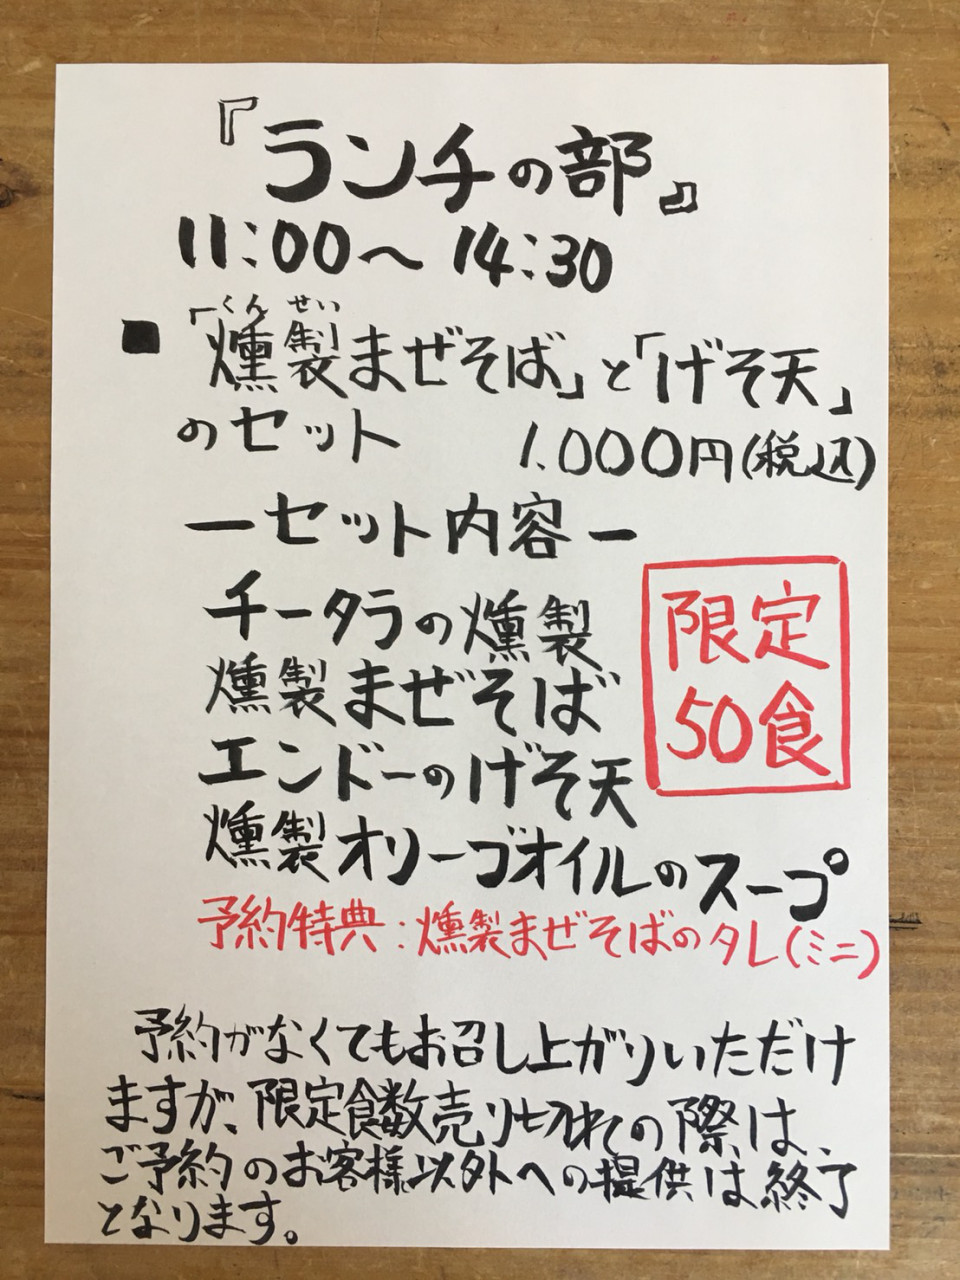 『ランチの部』
11:00〜14:30
くんせい
■「燻製まぜそば」と「げそ天」
のセット 1.000円(税込)
ーセット内容ー
チータラの燻製
燻製まぜそば
エンドーのげそ天
燻製オリーブオイルのスープ
限定
50食
予約特典:燻製まぜそばのタレ(ミニ)
予約がなくてもお召し上がりいただけ
ますが、限定食数売り切れの際は、
ご予約のお客様以外への提供は終了
となります。